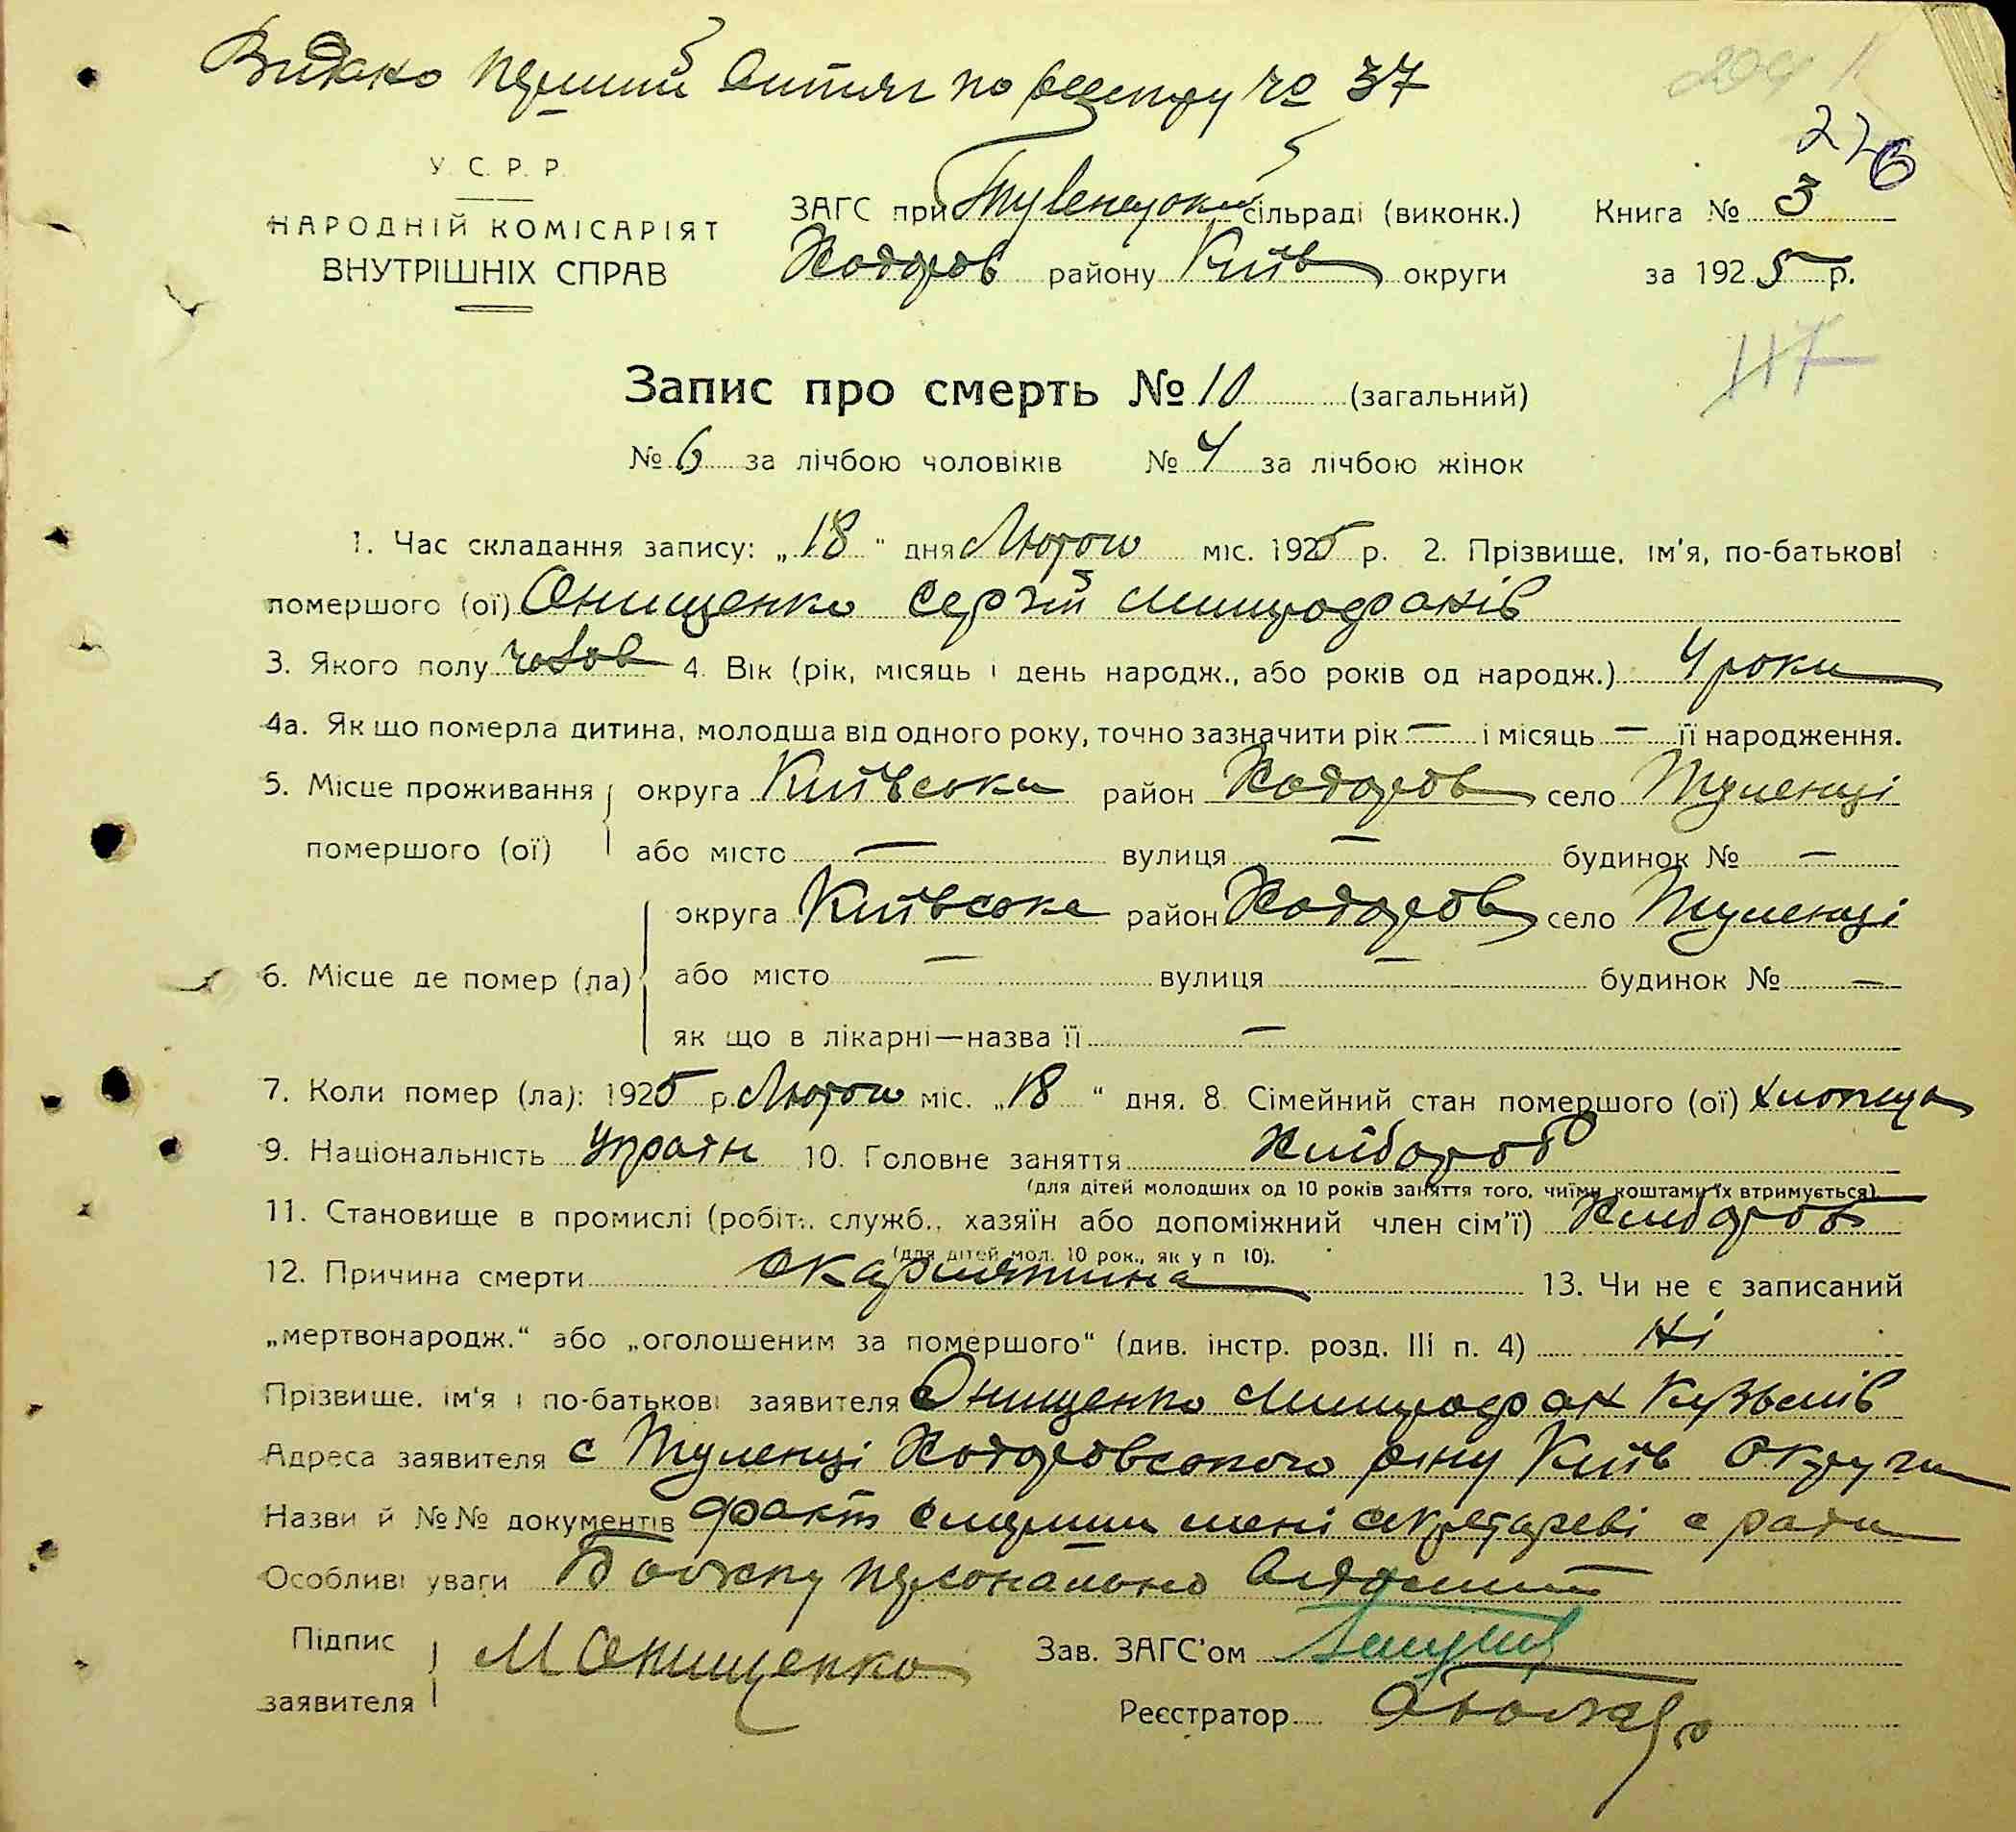 Видано перший витяг по реєстру № 37
226
У. С. Р. Р.
НАРОДНІЙ КОМІСАРІЯТ
ВНУТРІШНІХ СПРАВ
ЗАГС при сільраді (виконк.) Книга № 3
Ходоров району Київ округи за 1925 р.
117
Запис про смерть № 10 (загальний)
№ 6 за лічбою чоловіків № 4 за лічбою жінок
1. Час складання запису: „18" дня Лютого міс. 1925 р. 2. Прізвище, ім'я, по-батькові
помершого (ої) Онищенко Сергій Митрофанів
3. Якого полу чолов 4. Вік (рік, місяць і день народж., або років од народж.) 4 роки
4а. Як що померла дитина, молодша від одного року, точно зазначити рік — і місяць — її народження.
5. Місце проживання округа Київська район Ходоров село Туленці
помершого (ої) або місто — вулиця — будинок № —
округа Київська район Ходоров село Туленці
6. Місце де помер (ла) або місто — вулиця — будинок № —
як що в лікарні—назва її —
7. Коли помер (ла): 1925 р. Лютого міс. „18" дня. 8. Сімейний стан помершого (ої)
9. Національність Украін 10. Головне заняття Хлібороб
(для дітей молодших од 10 років заняття того, чиїми коштами їх втримується)
11. Становище в промислі (робітн., служб., хазяїн або допоміжний член сім'ї) Хлібороб
(для дітей мол. 10 рок., як у п 10).
12. Причина смерти скарлятина 13. Чи не є записаний
„мертвонародж." або „оголошеним за помершого" (див. інстр. розд. III п. 4) Ні
Прізвище, ім'я і по-батькові заявителя Онищенко Митрофан Кузьмів
Адреса заявителя с Туленці Ходоровського р-ну Київ Округи
Назви й №№ документів факт смерти мені секретареві с ради
Особливі уваги персонально відомий
Підпис заявителя М Онищенко Зав. ЗАГС'ом
Реєстратор